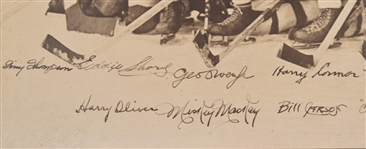 Tiny Thompson Eddie Shore Geo Owen Harry Connor
Harry Oliver Mickey Mackay Bill